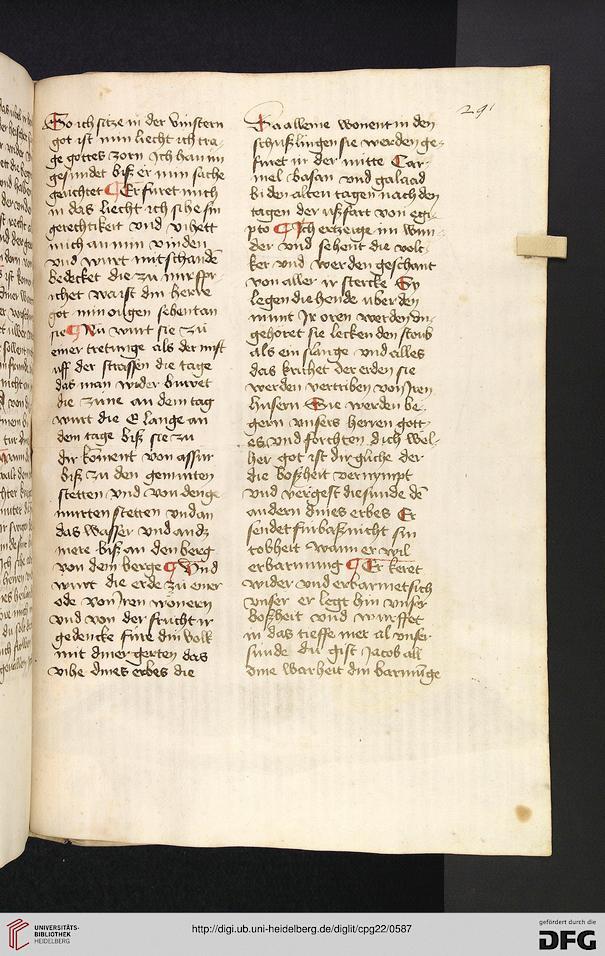 291
So ich sitze in der vinstern
got ist min liecht ich tra-
ge gottes zorn Ich han im
gesundet biß er min sache
gerichtet ¶ Er furet mich
in das liecht ich sihe sin
gerechtikeit vnd vihett
mich an min vinden
vnd wirt mit schanden
bedecket die zu mir spr-
ichet wa ist din herre
got min oügen sehent an
sie ¶ Nü wirt sie zü
einer tretunge als der mist
uff der strassen die tage
das man wider buwet
die züne an dem tag
wirt die E lange an
dem tage biß sie zu
dir koment von assur
biß zu den gemurten
stetten vnd von den ge-
murten stetten vnd an
das wasser vnd andz
mere biß an den berg
von dem berge ¶ Vnd
wirt die erde zü einer
ode von Iren wonern
vnd von der frucht ir
gedencke füre din volk
mit diner gerten das
vihe dines erbes die
Da alleine wonent in den
schüßlingen sie werden ge-
furet in der mitte Car-
mel basan vnd galaad
bi den alten tagen nach den
tagen der ußfart von egi-
pto ¶ Ich erzeige im wun-
der vnd sehent die volc-
ker vnd werden geschant
von aller ir stercke Sy
legen die hende uber den
munt Ir oren werden vn-
gehoret sie lecken den stoub
als ein slange vnd alles
das krichet der erden sie
werden vertriben von Iren
hüsern Sie werden be-
gern vnsers herren gott-
es vnd forchten dich wel-
her got ist dir gliche der
die boßheit vernympt
vnd vergest die sunde de
andern dines erbes Er
sendet furbaß nicht sin
tobheit wann er wil
erbarmung ¶ Er keret
wider vnd erbarmet sich
vnser er legt hin vnser
boßheit vnd wurffet
in das tieffe mer al vnser
sunde du gist Jacob all
dine warheit din barmu̅ge
UNIVERSITÄTS-
BIBLIOTHEK
HEIDELBERG
http://digi.ub.uni-heidelberg.de/diglit/cpg22/0587
gefördert durch die
DFG